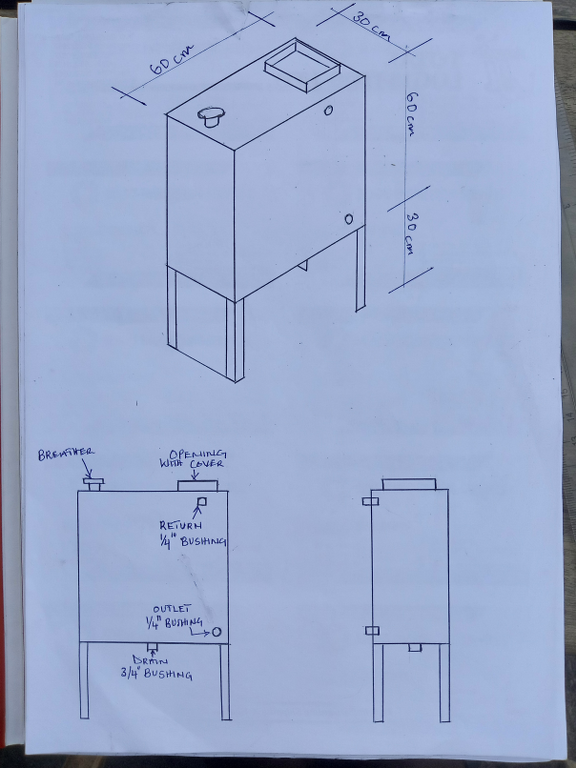 60 cm
30 cm
60 cm
30 cm
BREATHER
OPENING
WITH COVER
RETURN
1/4" BUSHING
OUTLET
1/4" BUSHING
DRAIN
3/4" BUSHING